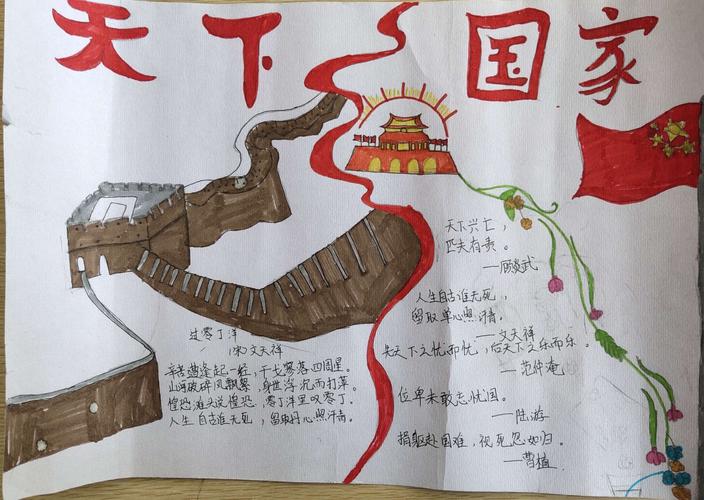 天下国家
天下兴亡，
匹夫有责。
——顾炎武
人生自古谁无死，
留取丹心照汗青。
——文天祥
先天下之忧而忧，后天下之乐而乐。
——范仲淹
位卑未敢忘忧国。
——陆游
捐躯赴国难，视死忽如归。
——曹植
过零丁洋
（宋）文天祥
辛苦遭逢起一经，干戈寥落四周星。
山河破碎风飘絮，身世浮沉雨打萍。
惶恐滩头说惶恐，零丁洋里叹零丁。
人生自古谁无死，留取丹心照汗青。